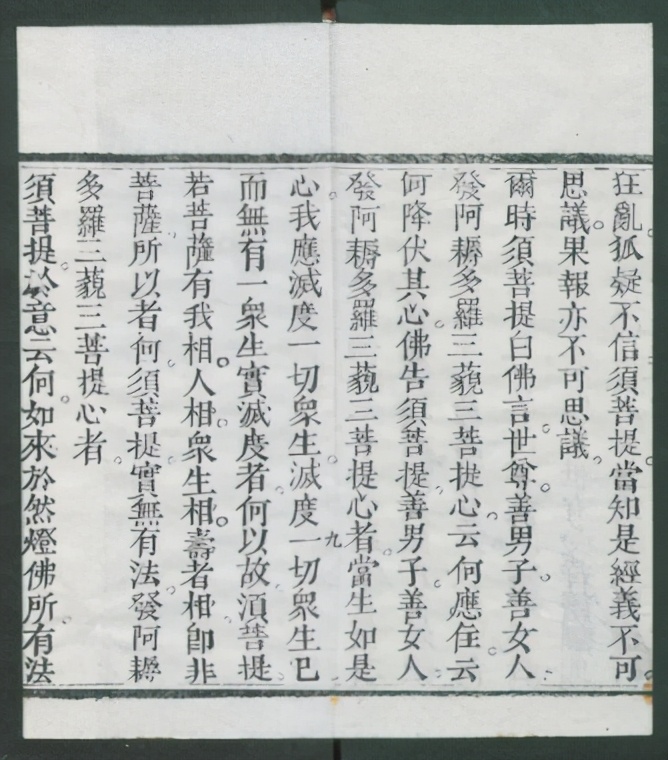 狂亂狐疑不信須菩提當知是經義不可
思議果報亦不可思議
爾時須菩提白佛言世尊善男子善女人
發阿耨多羅三藐三菩提心云何應住云
何降伏其心佛告須菩提善男子善女人
發阿耨多羅三藐三菩提心者當生如是
九
心我應滅度一切眾生滅度一切眾生已
而無有一眾生實滅度者何以故須菩提
若菩薩有我相人相眾生相壽者相即非
菩薩所以者何須菩提實無有法發阿耨
多羅三藐三菩提心者
須菩提於意云何如來於然燈佛所有法